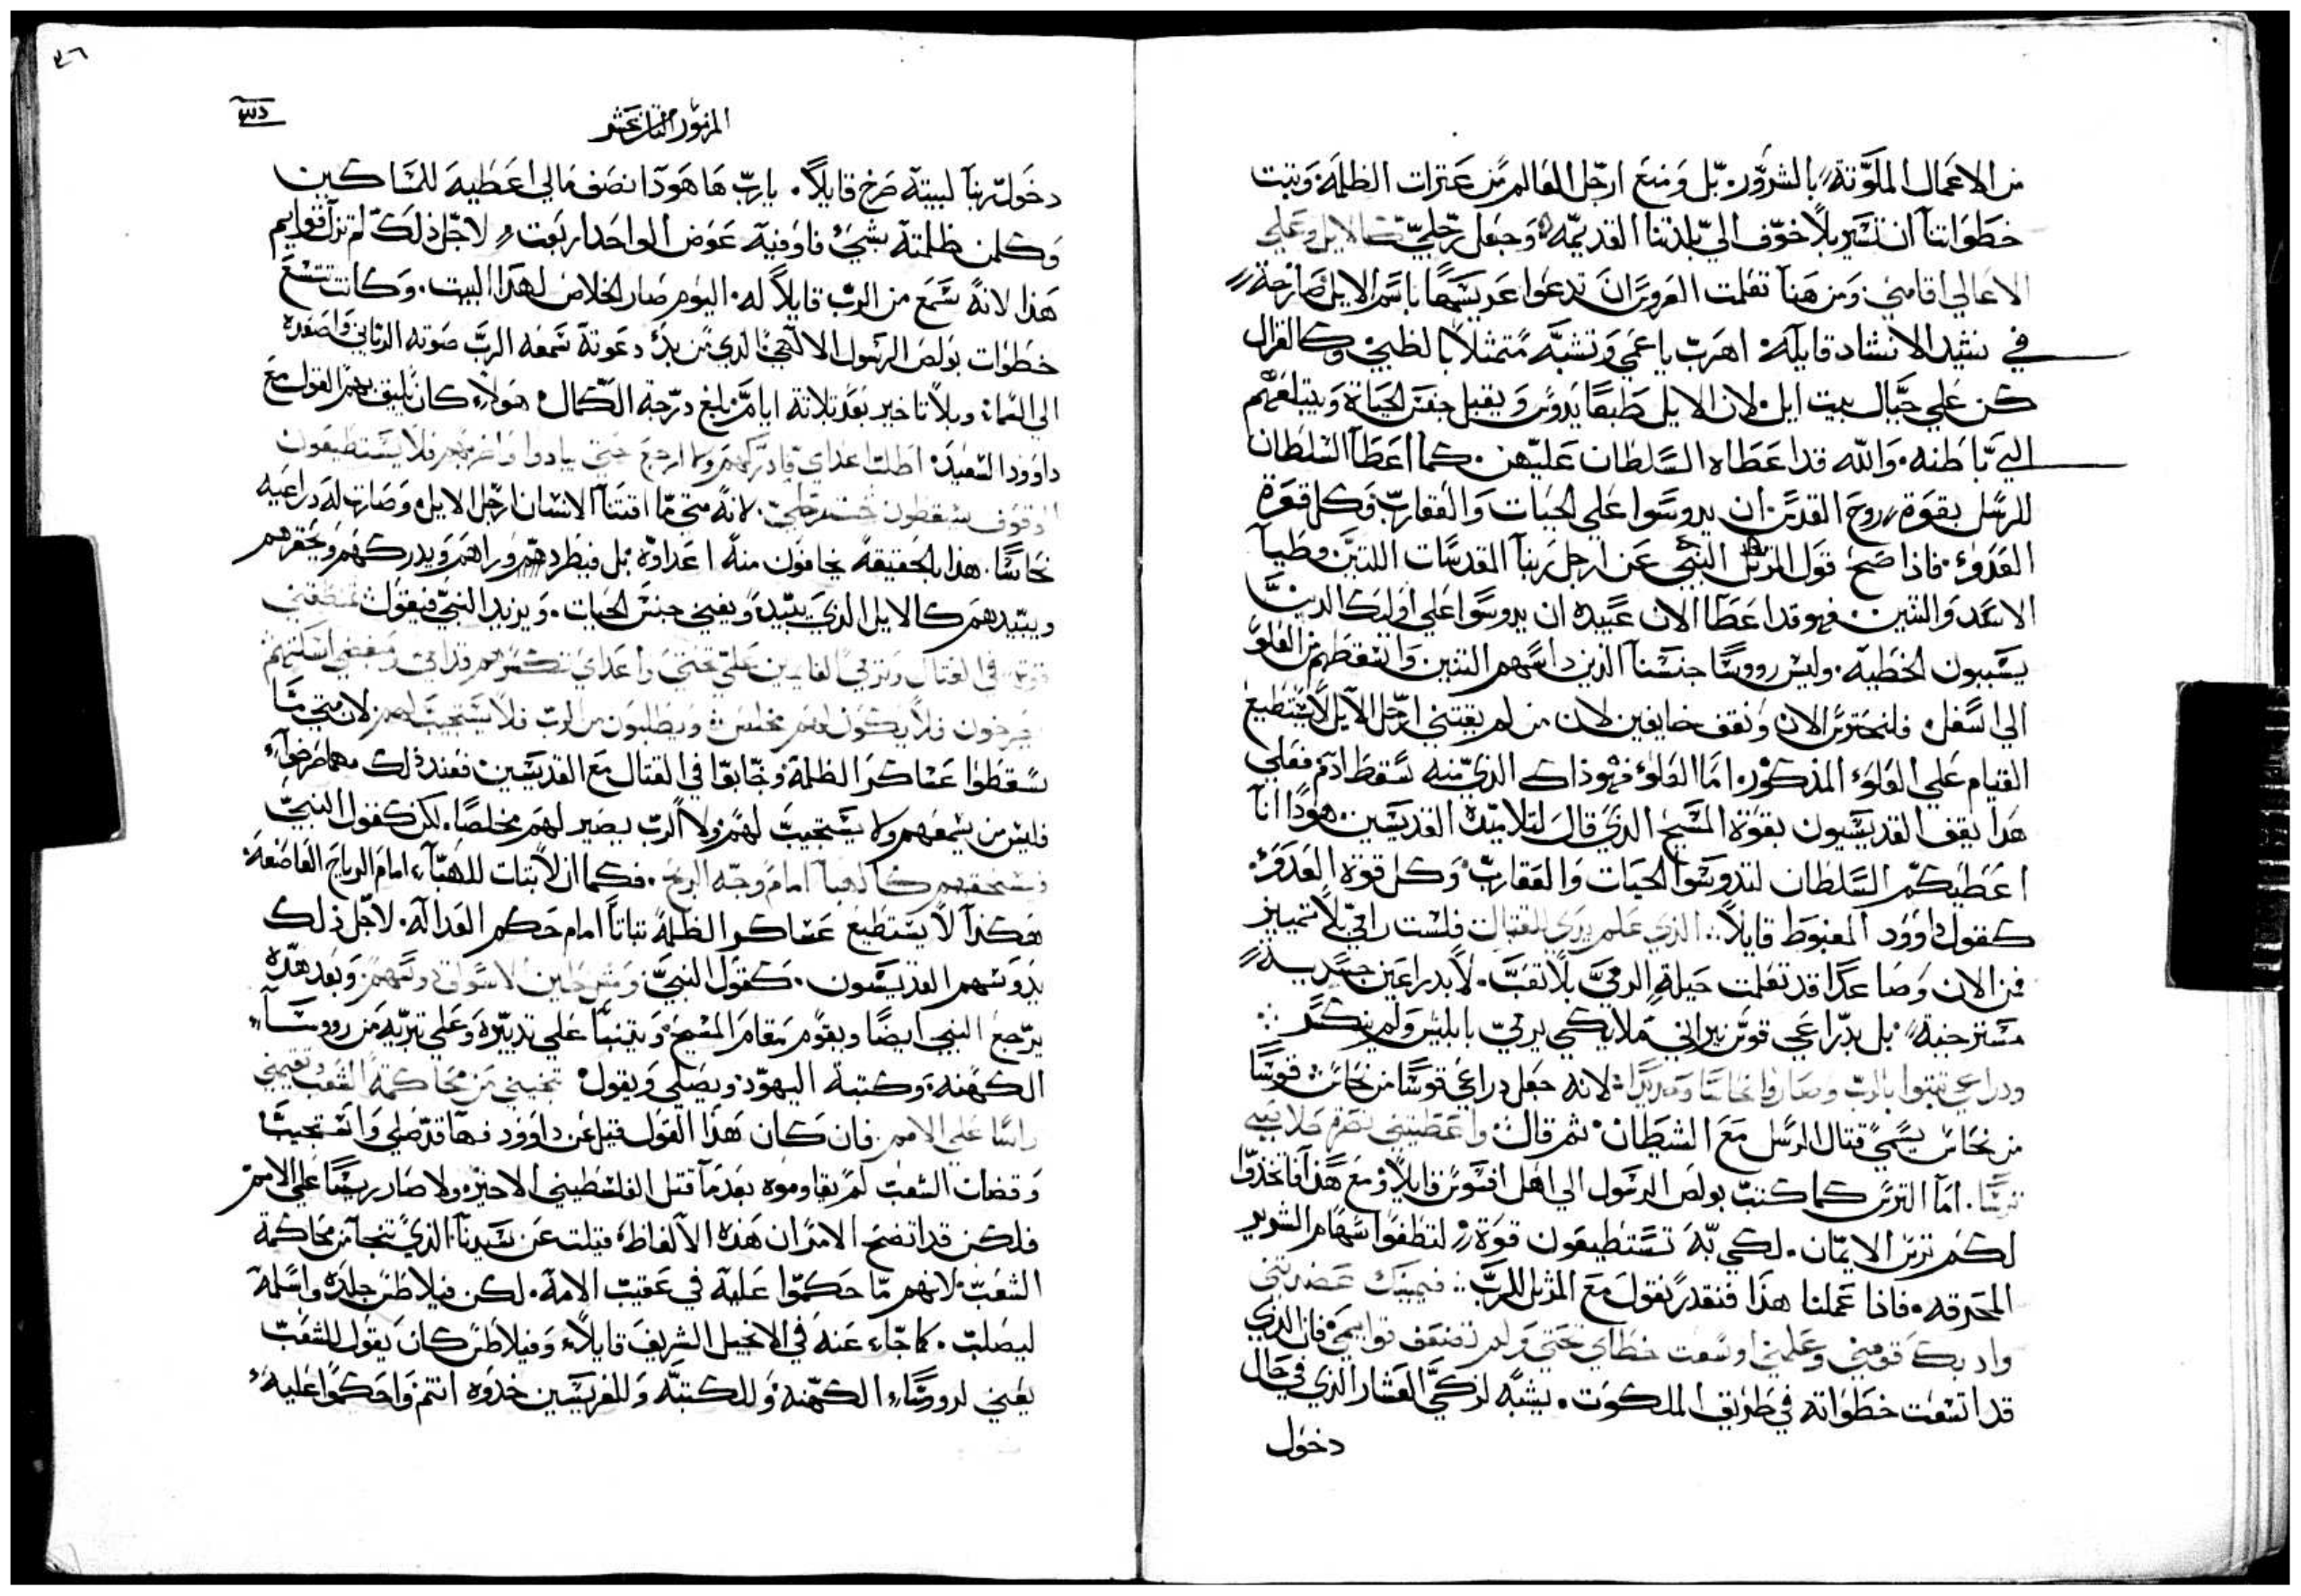 من الاعمال الملوّثة بالشرور. بل ومنع ارجل العالم من عثرات الظلمة وثبت
خطواتنا ان تسير بلا خوف الي بلدتنا القديمه وجعل رجليّ كالايل وعلي
الاعالي اقامني. ومن هنا تعلمت العروس ان تدعوا عريسها باسم الايل صارخة
في نشيد الانشاد قايله اهرب يا عمي وتشبّه متمثلا بالظبي وكالغزال
كن علي جبال بيت ايل. لان الايل طبعا يدوس ويقبل جنس الحياة ويبتلعهم
الي باطنه. والله قد اعطاه السلطان عليهن. كما اعطا السلطان
للرسل بقوة روح القدس ان يدوسوا علي الحيات والعقارب وكل قوة
العدو. فاذا صح قول المرتل النبي عن ارجل ربنا القدسات اللتين وطيا
الاسد والتنين. فهو قد اعطا الان عبيده ان يدوسوا علي اوليك الذين
يسببون الخطيه. وليس رووسا جنسنا الذين داسهم التنين واسقطهم من العلو
الي اسفل. فلنحترس الان ونقف خايفين لان من لم يقتني ارجل الايل لا يستطيع
القيام علي العلو المذكور. اما العلو فهو ذاك الذي منه سقط ادم. فعلي
هذا يقف القديسيون بقوة المسيح الذي قال لتلاميذه القديسين هوذا انا
اعطيكم السلطان لتدوسوا الحيات والعقارب وكل قوة العدو.
كقول داوود المغبوط قايلا. الذي علم يدي للقتال فلست رامي بلا تمييز
فمن الان وصاعدا قد تعلمت حيلة الرمي بلا تعب. لا بدراعين جسديه
مسترخية بل بدراعي قوس نيراني ملايكي يرمي بابليس ولم ينكسر
ودراعي تبتوا بالرب وصاروا نحاسا لانه جعل دراعي قوسا من نحاس قوسا
من نحاس يسمي قتال الرسل مع الشيطان. ثم قال واعطيتني نصرة خلاصي
ترسا. اما الترس كما كتب بولص الرسول الي اهل افسوس قايلا ومع هذا فاتخذوا
لكم ترس الايمان. لكي به تستطيعون قوة لتطفوا سهام الشرير
المحرقه. فاذا عملنا هذا فنقدر نقول مع المرتل للرب فيمينك عضدتني
وادبك قومني وعلمني اوسعت خطاي تحتي ولم تضعف قوايمي فان الذي
قد اتسعت خطواته في طريق الملكوت. يشبه لزكي العشار الذي في حال
دخول
المزمور السابع عشر
دخول ربنا لبيته صرخ قايلا. يارب ها هوذا نصف مالي اعطيه للمساكين
وكلمن ظلمته بشي فاوفيه عوض الواحد اربعة. لاجل ذلك لم تزل قوايم
هذا لانه سمع من الرب قايلا له. اليوم صار الخلاص لهذا البيت. وكانت تتسع
خطوات بولص الرسول الالاهي الذي من بدء دعوته سمعه الرب صوته الرباني واصعده
الي السماء وبلا تاخير بعد تلاتة ايام بلغ درجة الكمال هولاء كان يليق بهم القول مع
داوود السعيد. اطلب اعداي فادركهم ولا ارجع حتي يبادوا واخزيهم فلا يستطيعون
الوقوف يسقطون تحت رجلي. لانه متي ما اقتنا الانسان ارجل الايل وصارت له دراعيه
نحاسا. هذا بالحقيقه يخافون منه اعداوه بل فيطردهم وراهم ويدركهم ويحقرهم
ويبيدهم كالايل الذي يبيد ويفني جنس الحيات. ويزيد النبي فيقول تمنطقني
قوة في القتال وترمي القايمين علي تحتي واعداي تكسرهم قدامي ومبغضي استاصلتهم
يصرخون فلا يكون لهم مخلص ويطلبون من الرب فلا يستجيب لهم لان متي ما
سقطوا عساكر الظلمة وخابوا في القتال مع القديسين فعند ذلك مهما صرخوا
فليس من يسمعهم ولا يستجيب لهم ولا الرب يصير لهم مخلصا. لكن كقول النبي
فسنسحقهم كالهبا امام وجه الريح. فكما ان لا ثبات للهباء امام الرياح العاصفه
هكذا لا يستطيع عساكر الظلمة ثباتا امام حكم العدالة. لاجل ذلك
يدوسهم القديسون. كقول النبي ومثل طين الاسواق دوسهم. وبعد هذه
يرجع النبي ايضا ويقوم مقام المسيح ويتنبا علي تدبيره وعلي تبريه من رووسا
الكهنه وكتبة اليهود ويصلي ويقول تنجيني من محاكمة الشعب وتقيمني
راسا علي الامم. فان كان هذا القول قيل عن داوود فها قد صلي واستجيب
وقضات الشعب لم يقاوموه بعدما قتل الفلسطيني الاخيره ولا صار ريسا علي الامم
فلكن قد اتضح الامر ان هذه الالفاظ قيلت عن سيدنا الذي تنجا من محاكمة
الشعب. لانهم ما حكموا عليه في عقيب الامة. لكن فيلاطس جلده واسلمه
ليصلب. كما جاء عنه في الانجيل الشريف قايلا. وفيلاطس كان يقول للشعب
يعني لرووساء الكهنه وللكتبه وللفريسيين خدوه انتم واحكموا عليه